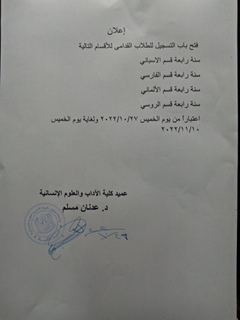 إعلان
فتح باب التسجيل للطلاب القدامى للأقسام التالية
سنة رابعة قسم الاسباني
سنة رابعة قسم الفارسي
سنة رابعة قسم الألماني
سنة رابعة قسم الروسي
اعتباراً من يوم الخميس ٢٠٢٢/١٠/٢٧ ولغاية يوم الخميس
٢٠٢٢/١١/١٠
عميد كلية الآداب والعلوم الإنسانية
د. عدنان مسلم